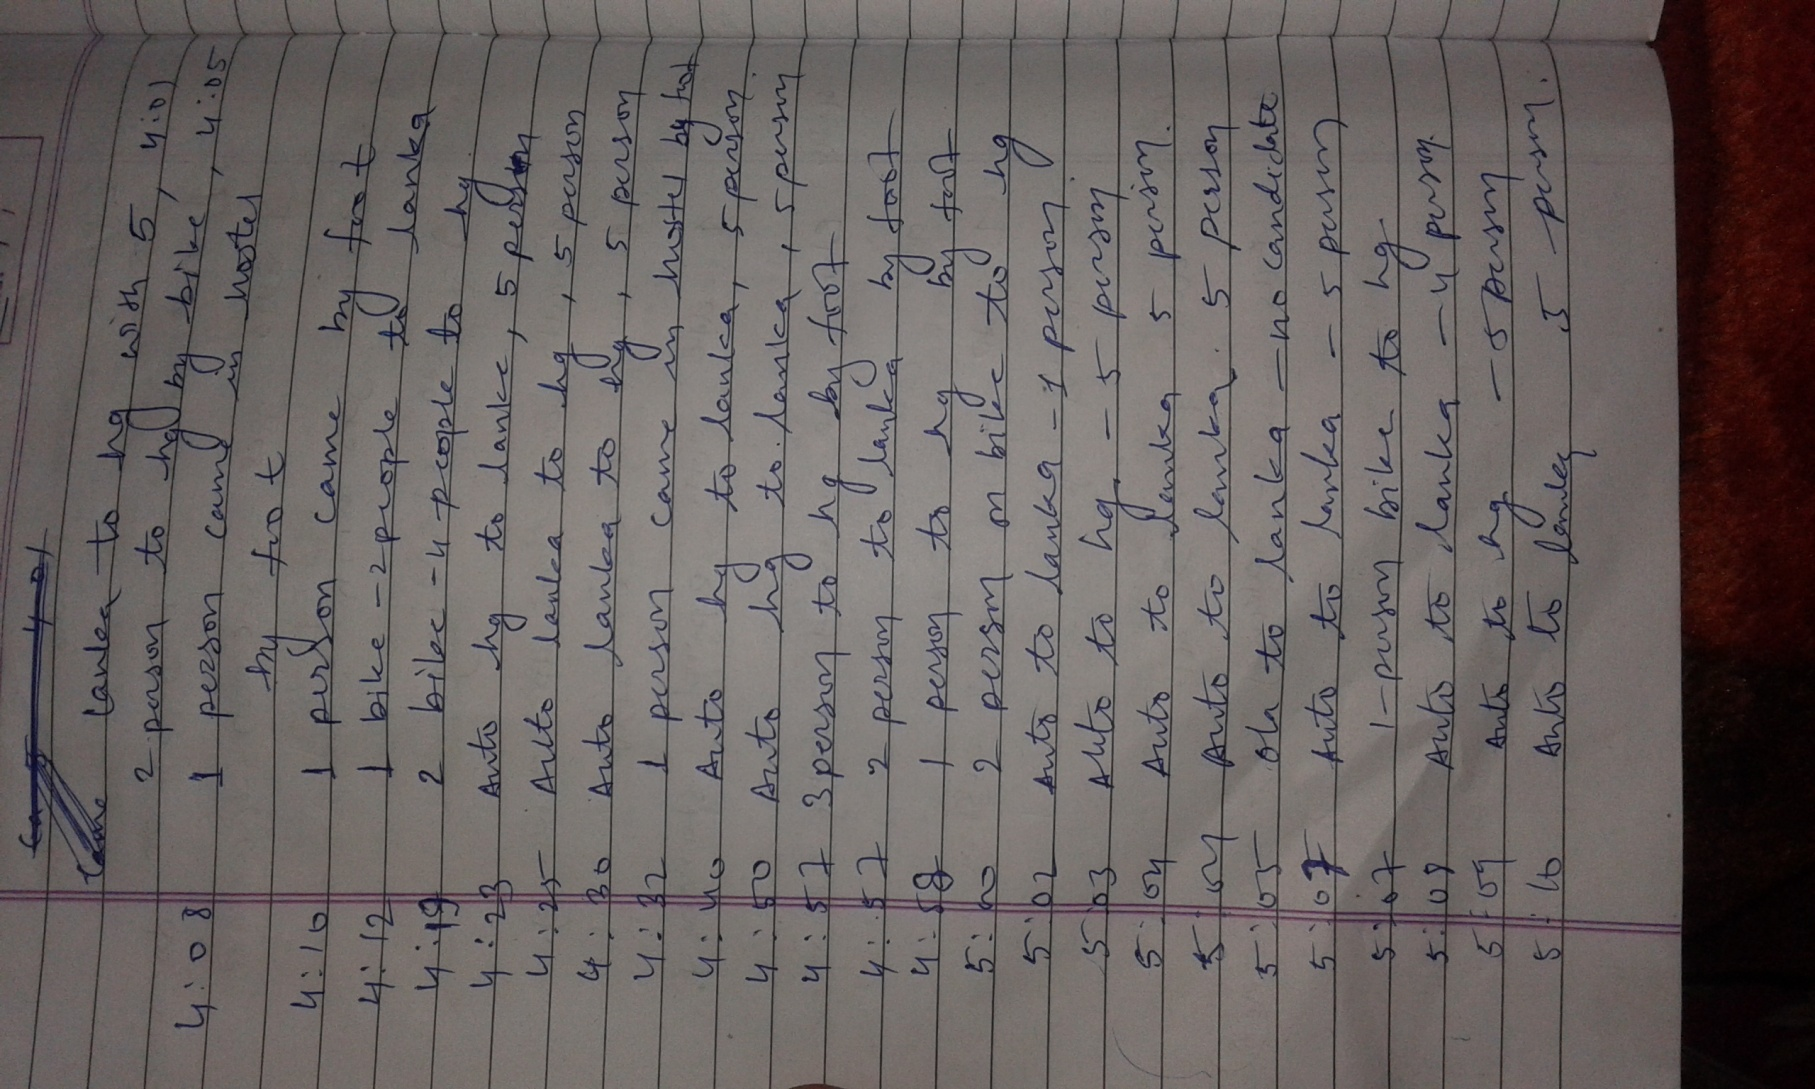 Came Lanka to hg with 5, 4:01
2 person to hg by bike, 4:05
4:08 1 person came in hostel
by foot
4:10 1 person came by foot
4:12 1 bike - 2 people to lanka
4:19 2 bike - 4 people to hg
4:23 Auto hg to lanke, 5 person
4:25 Auto lanka to hg, 5 person
4:30 Auto lanka to hg, 5 person
4:32 1 person came in hostel by foot
4:40 Auto hg to lanka, 5 person.
4:50 Auto hg to lanka, 5 person
4:57 3 person to hg by foot
4:57 2 person to lanka by foot
4:58 1 person to hg by foot
5:00 2 person on bike to hg
5:02 Auto to lanka - 1 person
5:03 Auto to hg - 5 person
5:04 Auto to lanka 5 person.
5:04 Auto to lanka. 5 person
5:05 Ola to lanka - no candidate
5:07 Auto to lanka - 5 person
5:07 1 - person bike to hg
5:08 Auto to lanka - 4 person.
5:09 Auto to hg - 5 person
5:10 Auto to lanka 5 person.